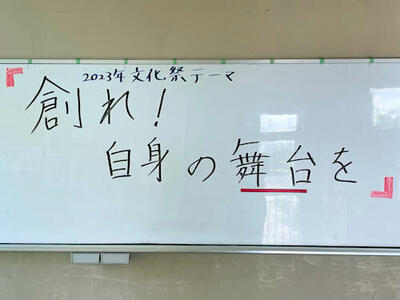 2023年文化祭テーマ
創れ!
自身の舞台を